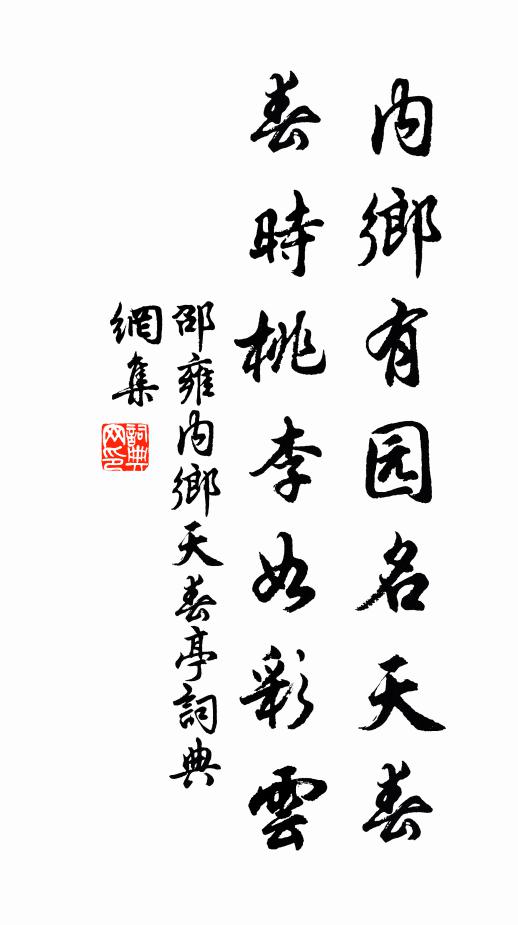 内鄉有园名天春
春時桃李如彩雲
邵雍内鄉天春亭詞典
網集
詞典
网印